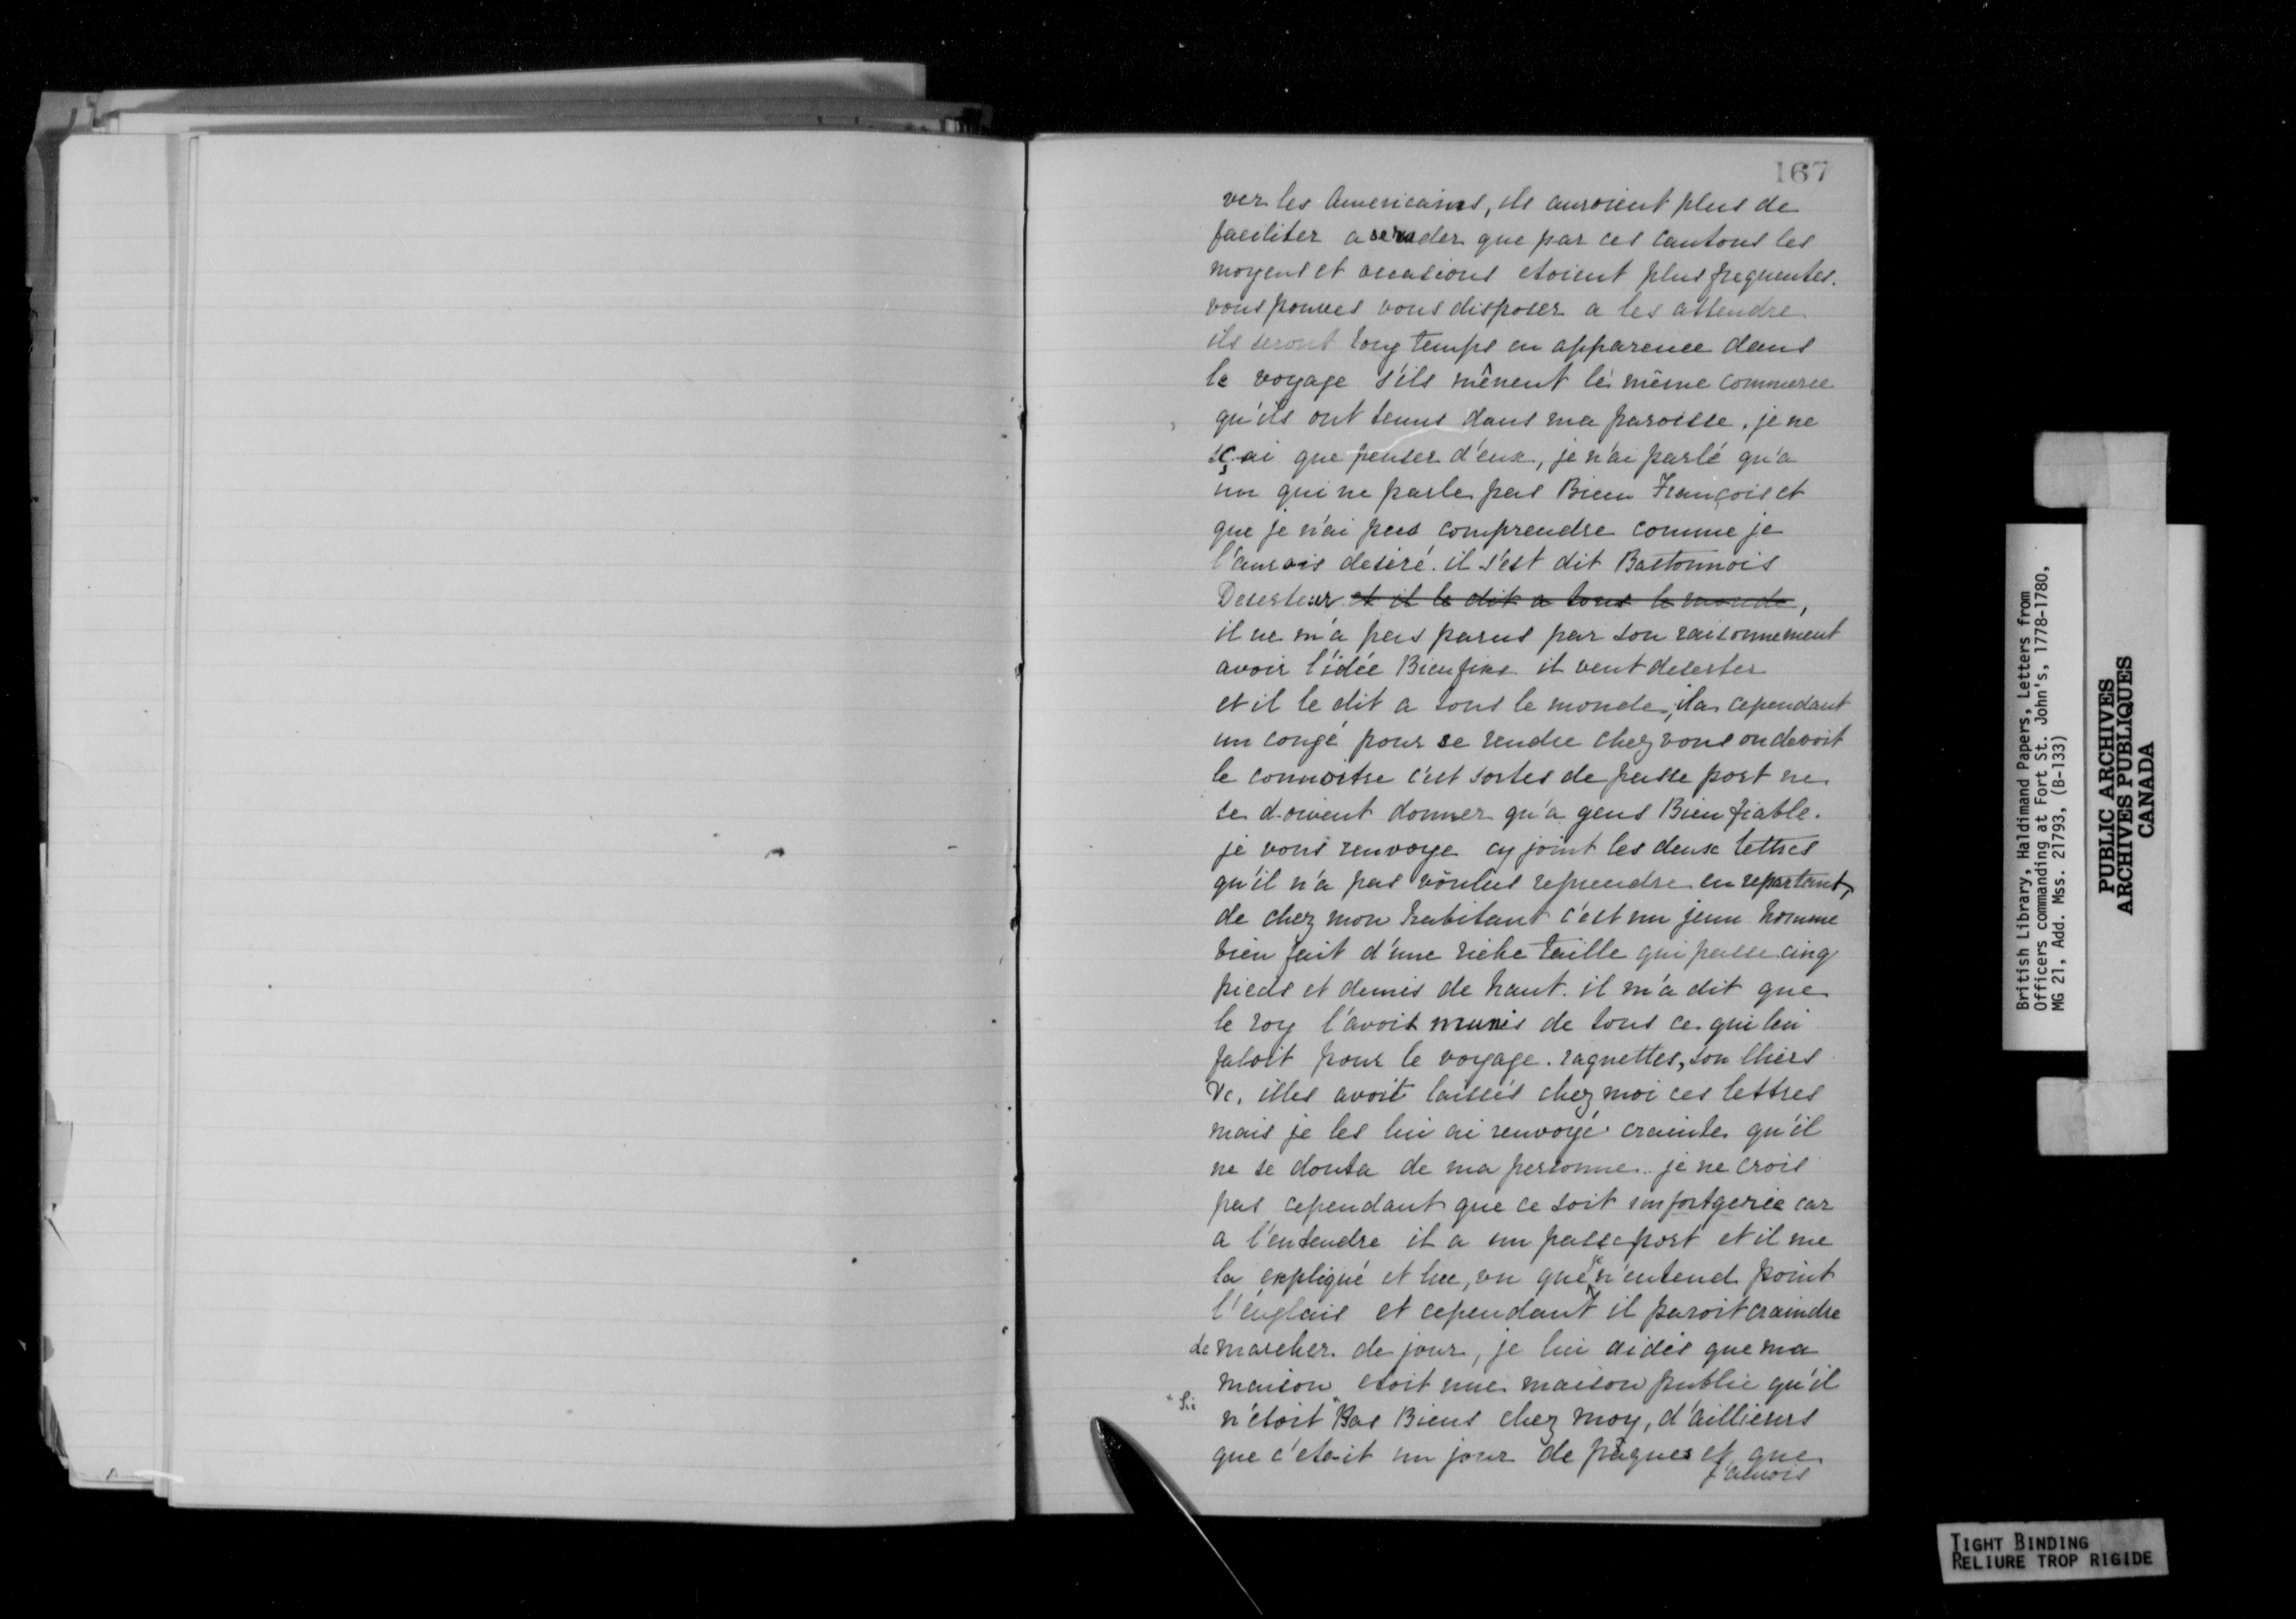 167
ver les Americains, ils auroient plus de
faciliter a se rader que par ces cantons les
moyens et occasions etoient plus frequentes.
vous pouves vous disposer a les attendre
ils seront long temps en apparence dans
le voyage s'ils mênent le même commerce
qu'ils ont tenus dans ma paroisse. je ne
sçai que penser d'eux, je n'ai parlé qu'a
un qui ne parle pas Bien François et
que je n'ai pas comprendre comme je
l'aurois desiré. il s'est dit Bastonnois
Deserteur et il le dit a tous le monde,
il ne m'a pas parus par son raisonnement
avoir l'idée Bien fixe il veut deserter
et il le dit a tous le monde, il a cependant
un congé pour se rendre chez vous on devoit
le connoitre c'est sortes de passe port ne
se doivent donner qu'a gens Bien fiable.
je vous renvoye cy joint les deux lettres
qu'il n'a pas voulus reprendre en repartant,
de chez mon habitant c'est un jeun homme
bien fait d'une riche taille qui passe cinq
pieds et demis de haut. il m'a dit que
le roy l'avoit munis de tous ce qui lui
faloit pour le voyage. raquettes, souliers
&c. illes avoit laissés chez moi ces lettres
mais je les lui ai renvoyé crainte qu'il
ne se douta de ma personne. je ne crois
pas cependant que ce soit un fortgerie car
a l'entendre il a un passe port et il me
la expliqué et lue, vu que je n'entend point
l'énglais et cependant il paroit craindre
de marcher de jour, je lui aidis que ma
maison etoit une maison public qu'il
* Sic
n'étoit *Pas Biens chez moy, d'aillieurs
que c'étoit un jour de pâques et que
j'aurois
British Library, Haldimand Papers, Letters from
Officers commanding at Fort St. John's, 1778-1780,
MG 21, Add. Mss. 21793, (B-133)
PUBLIC ARCHIVES
ARCHIVES PUBLIQUES
CANADA
TIGHT BINDING
RELIURE TROP RIGIDE